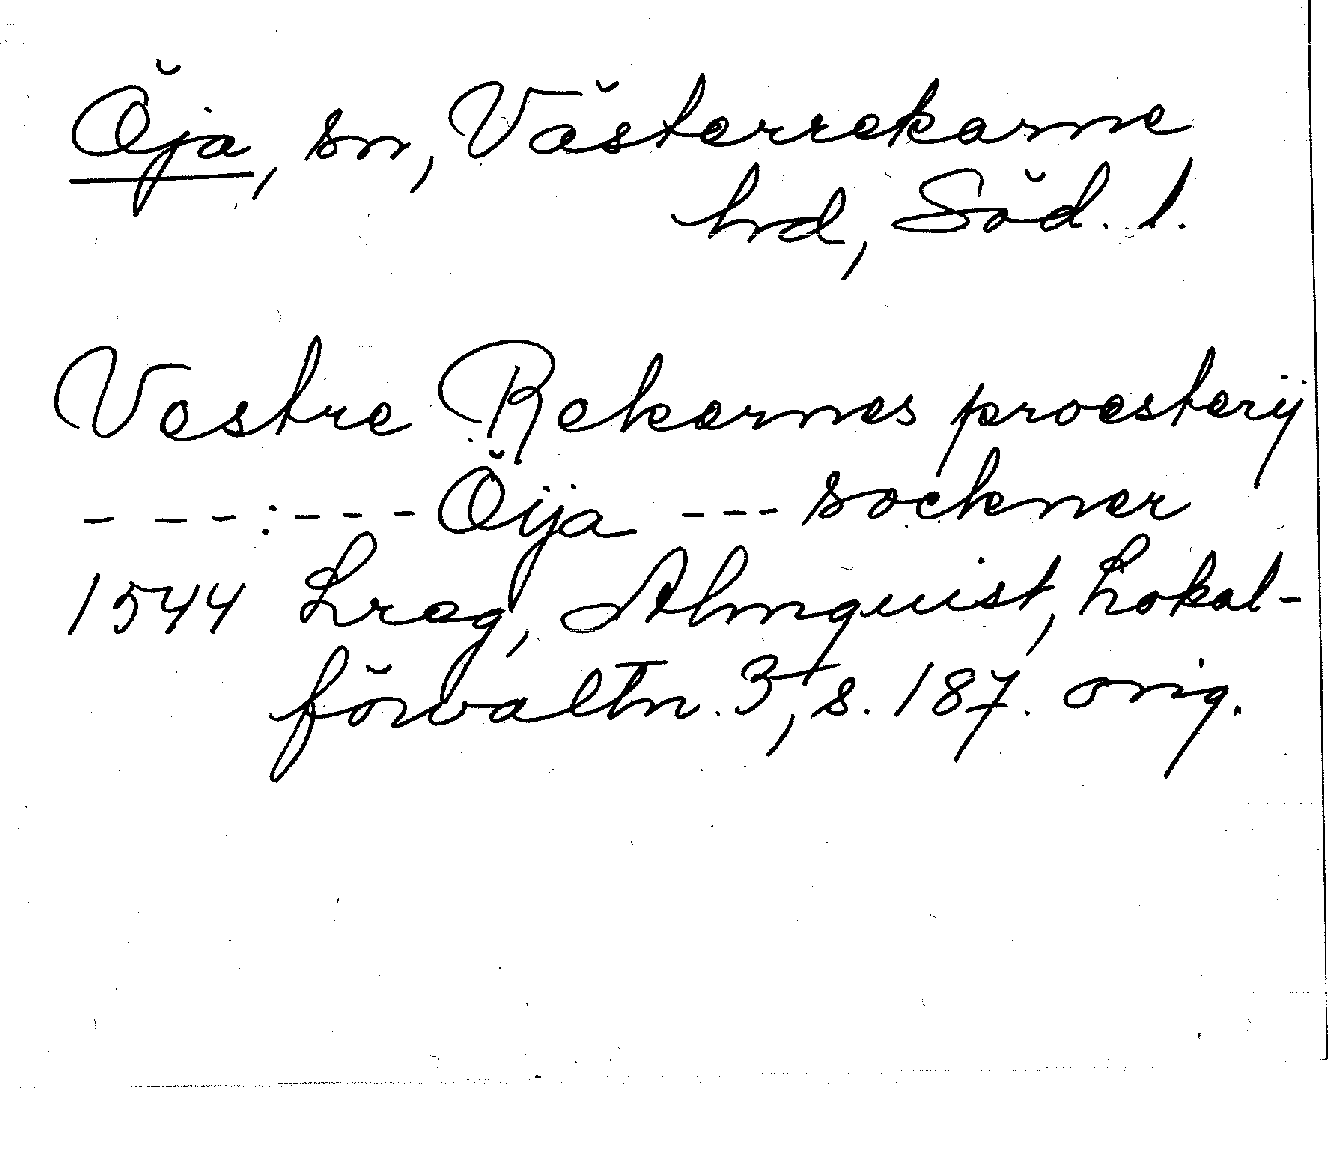 Öja, sn, Västerrekarne
hd, Söd. l.
Vestre Rekernes proesterij
- - - : - - - Öija - - - sockner
1544 Lreg, Almquist, Lokal-
förvaltn. 3, s. 187. orig.